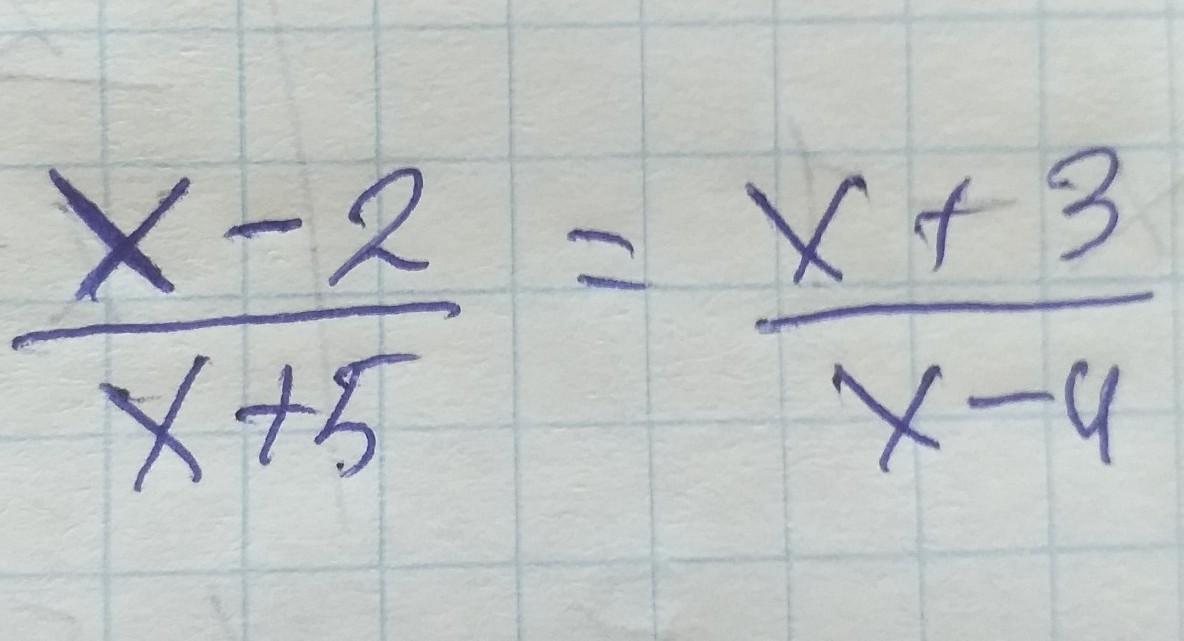 x - 2 / x + 5 = x + 3 / x - 4